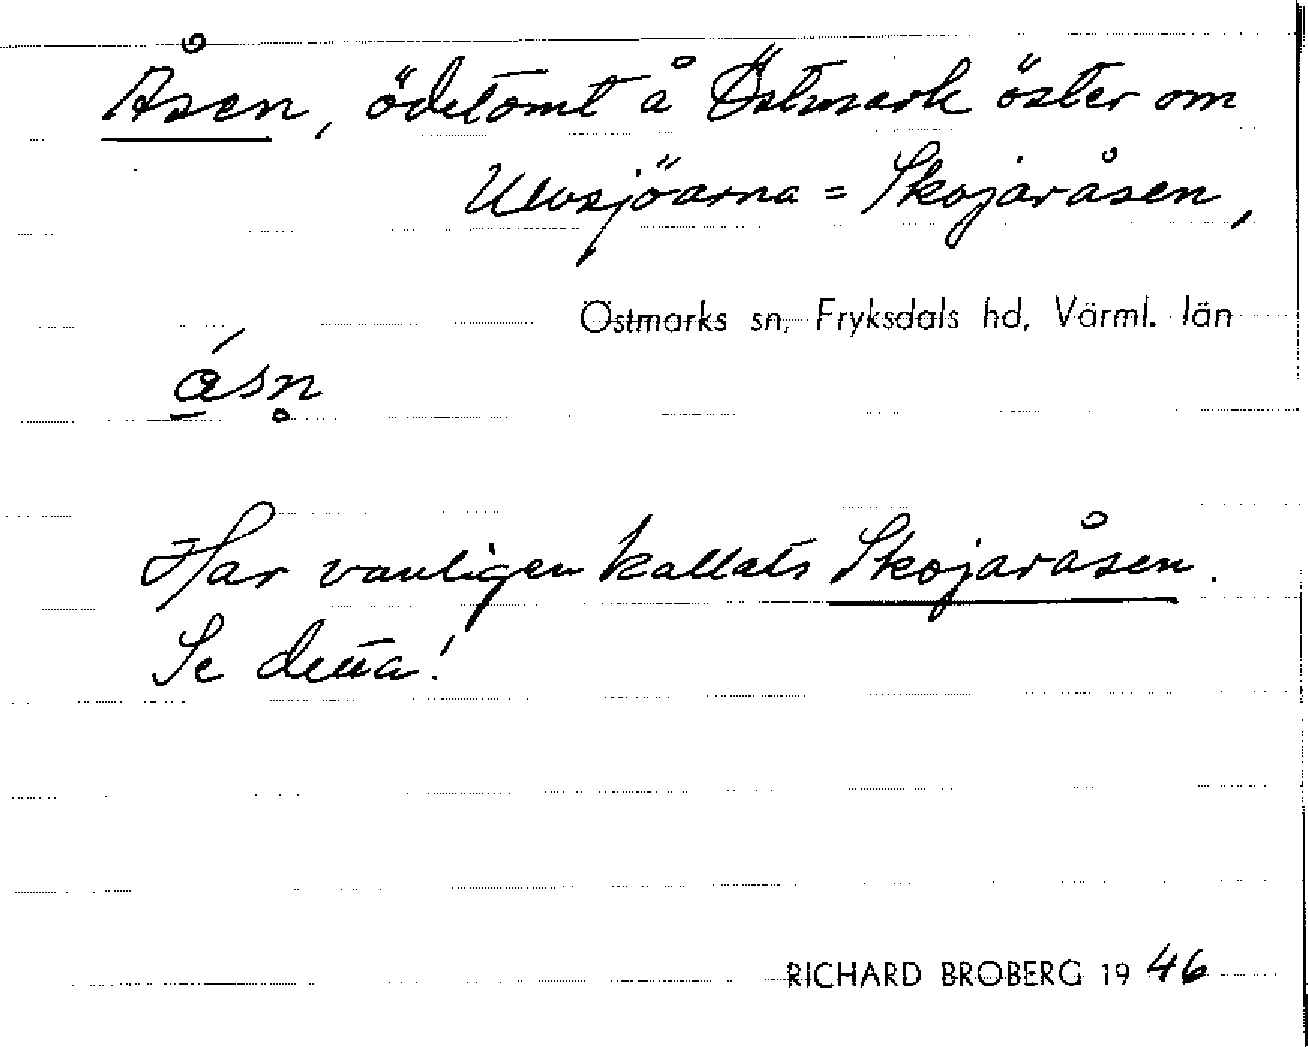 Åsen, ödetomt å Östmark öster om
Ulvsjöarna = Skojaråsen,
Östmarks sn, Fryksdals hd, Värml. län
ásn̥
Har vanligen kallats Skojaråsen.
Se detta!
RICHARD BROBERG 1946